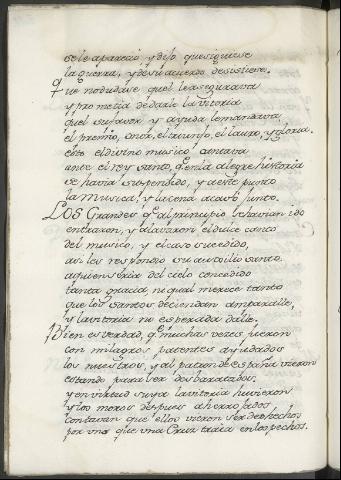 se le aparecio y dijo que siguiese
la guerra, y de su acuerdo desistiese.
Que no dudase quel le asegurava
y prometia de darle la vitoria
quel su favor y ayuda le mandava
el premio, onor, el triunfo, el lauro, y gloria.
esto el divino musico cantava
ante el rey santo, q. en la alegre historia
se havia suspendido, y a este punto
la musica, y la cena acavo junto.
LOS Grandes q. al principio se havian ido
entraron, y alavaron el dulce canto
del musico, y el caso sucedido,
a les respondio su auxilio santo
a quien seria del cielo concedido
tanta gracia, ni qual merece tanto
que los santos deciendan ampararlle,
y la vitoria no esperada dalle.
Bien es verdad, q. muchas vezes fueron
con milagros patentes ayudados
los nuestros, y al patron de españa vieron
estando para ser desbaratados.
y en virtud suya la vitoria huvieron
y los moros despues aherrojados
contavan que ellos vieron ser deshechos
por uno que una Cruz traia en los pechos.